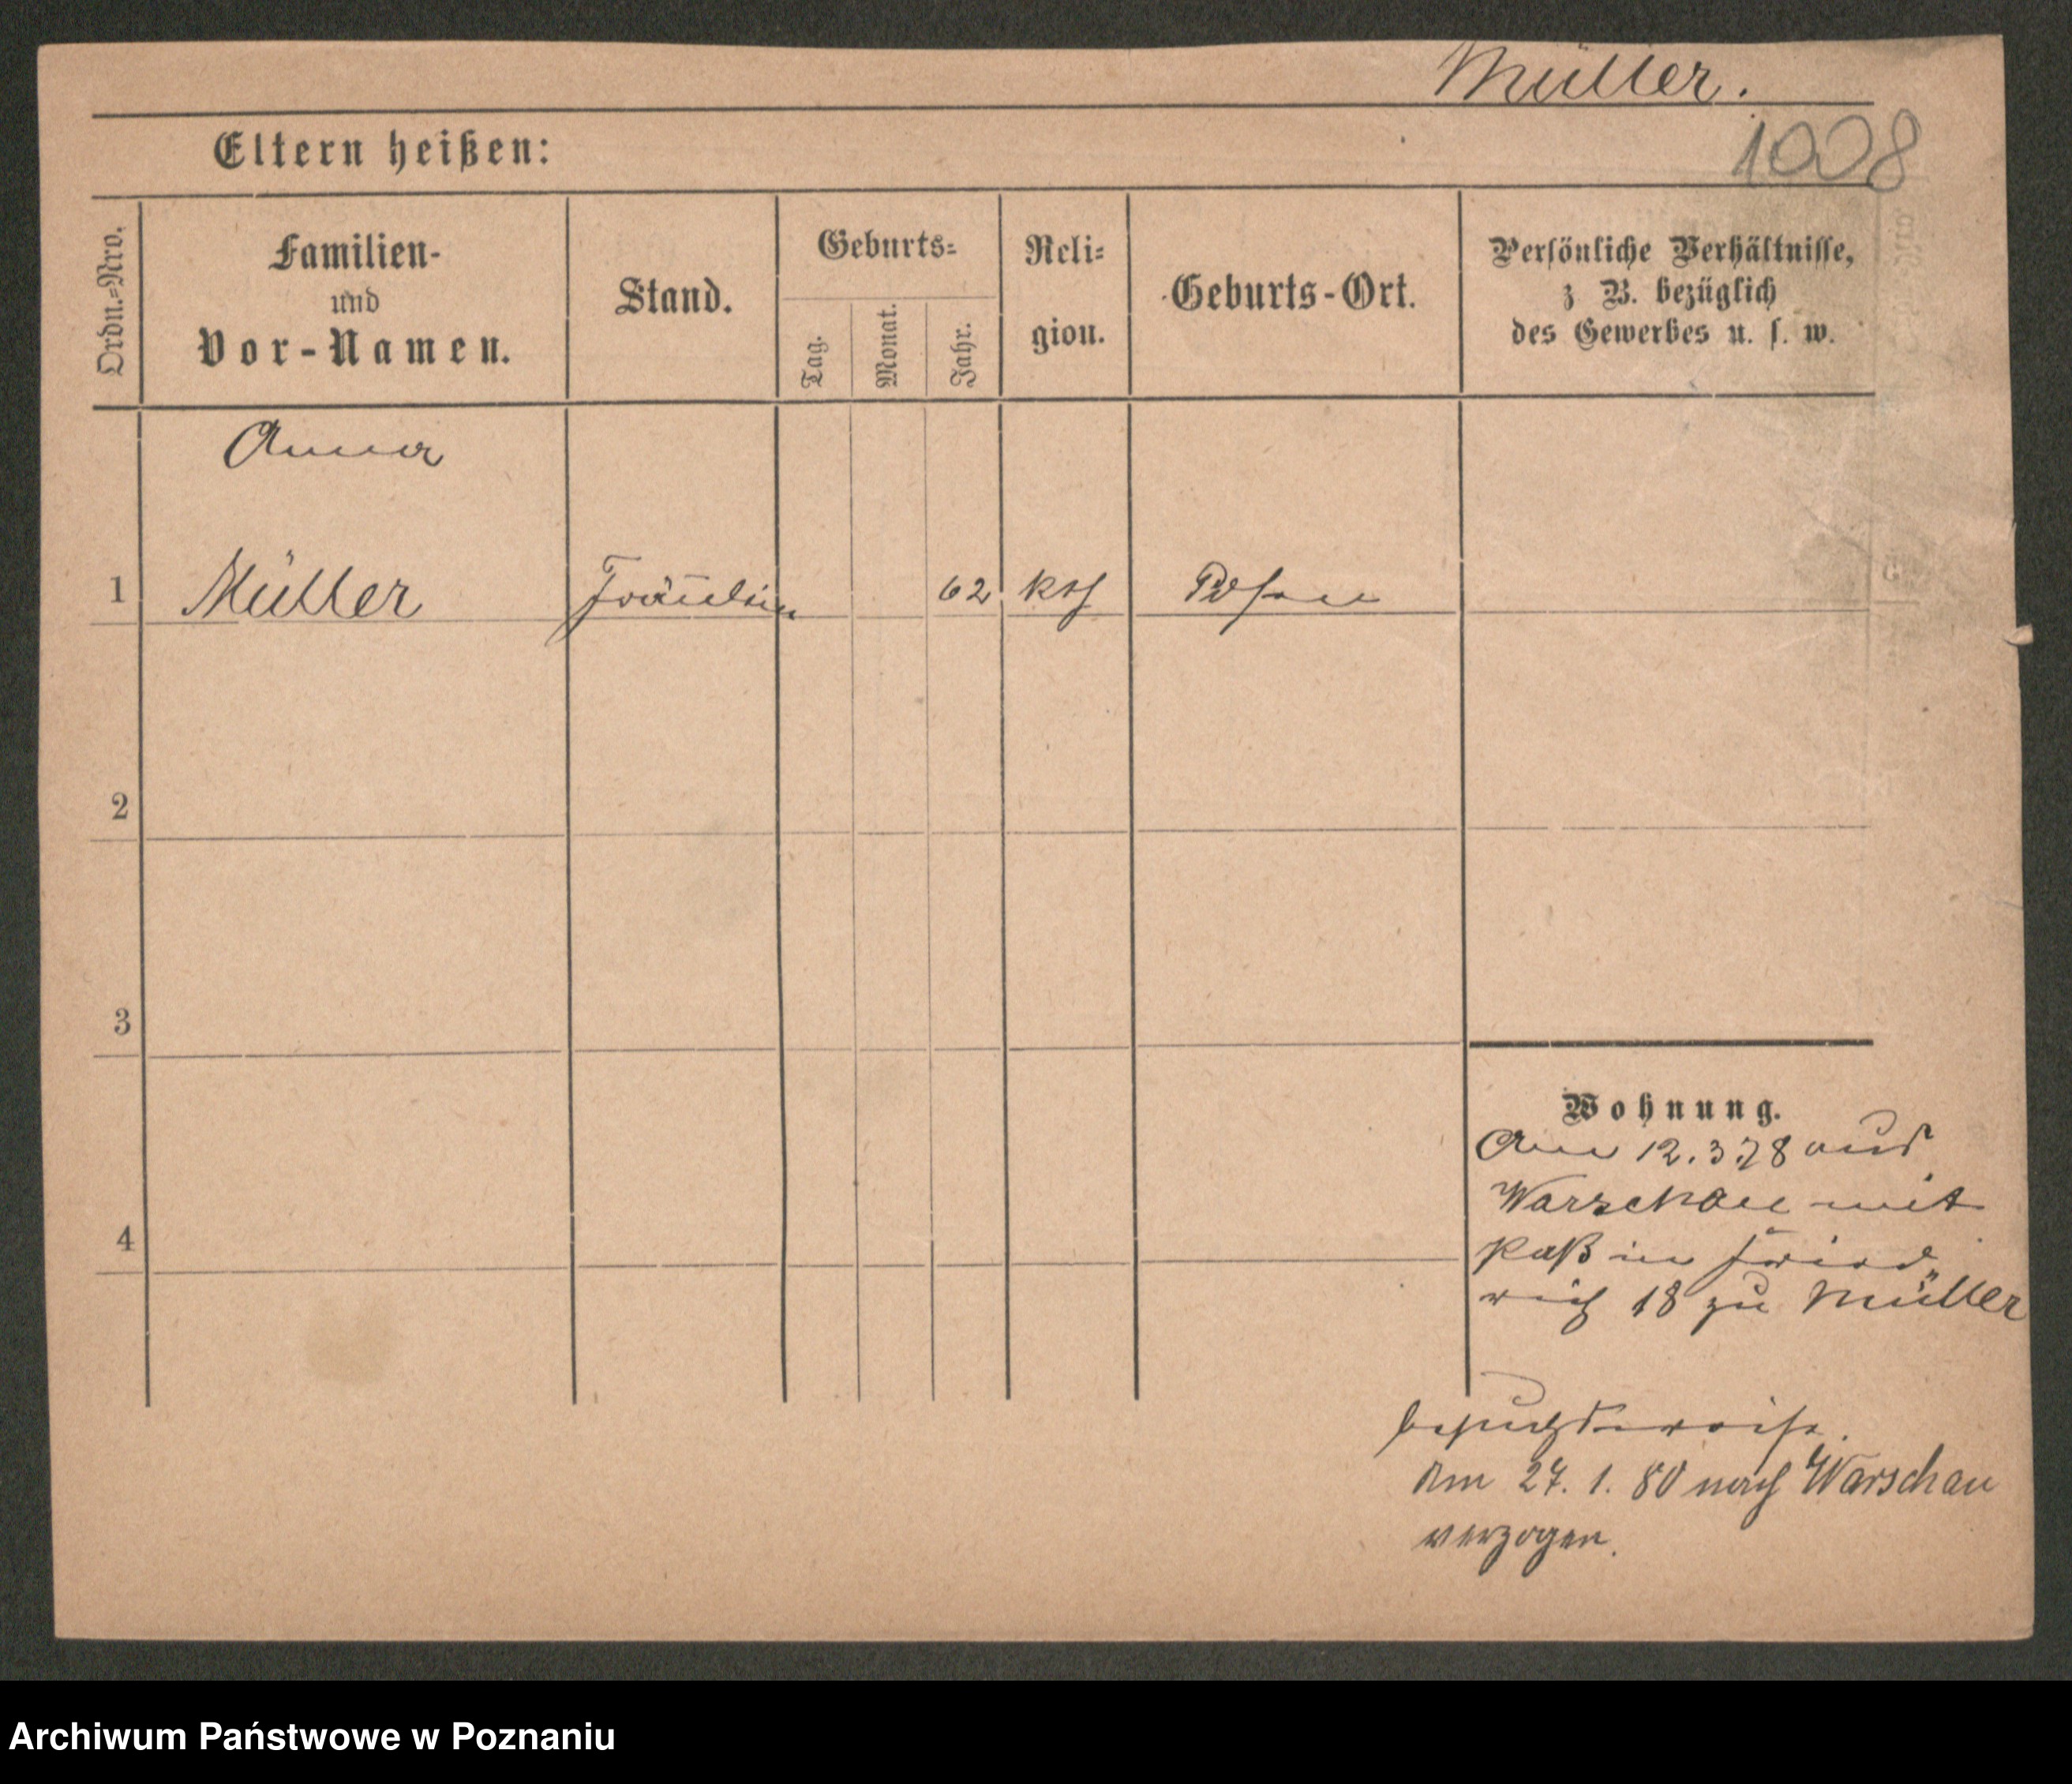 Müller.
Eltern heißen:
1008
Ordn.=Nro.
Familien-
und
Vor-Namen.
Stand.
Geburts=
Tag.
Monat.
Jahr.
Reli=
gion.
Geburts-Ort.
Persönliche Verhältnisse,
z B. bezüglich
des Gewerbes u. s. w.
Anna
1 Müller Fräulein 62 kth Posen
2
3
4
Wohnung.
Am 12.3.78 aus
Warschau mit
Paß in Fried
rich 18 zu Müller
besuchsweise.
Am 27. 1. 80 nach Warschau
verzogen.
Archiwum Państwowe w Poznaniu